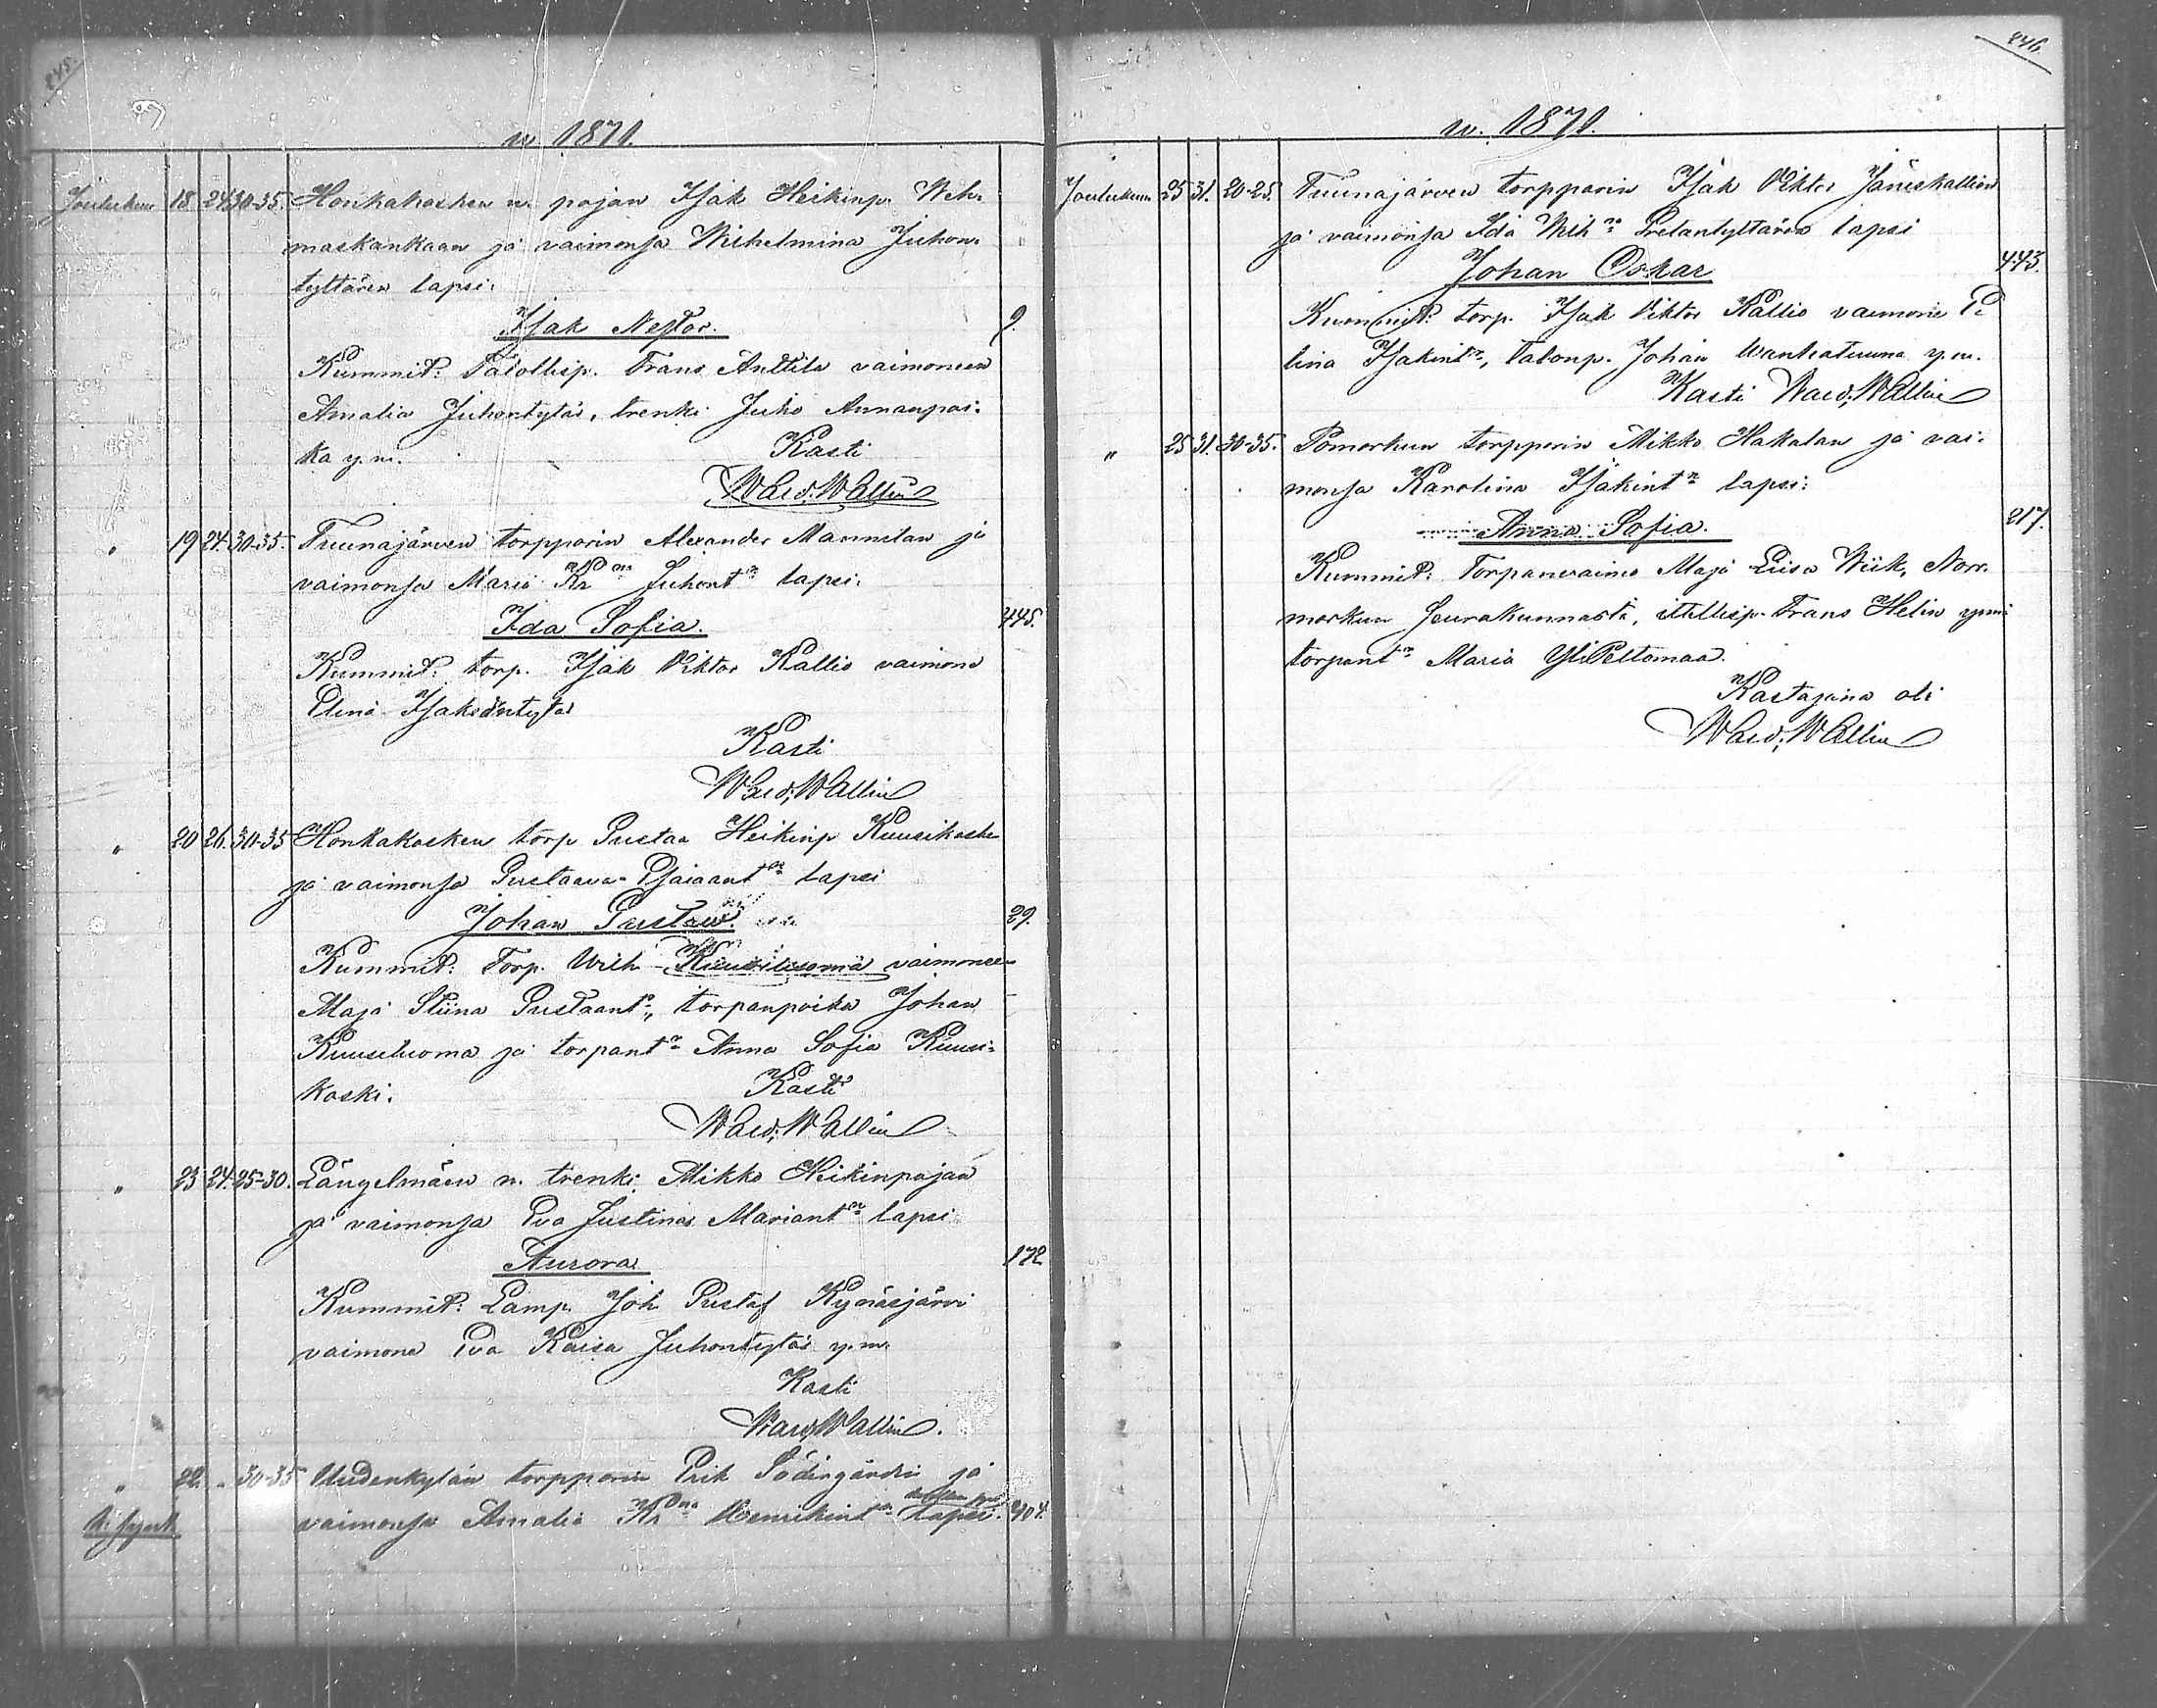 245.
w 1871.
Joulukuu 18 24 30-35. Honkakosken n. pojan Isak Heikinp. Weh-
maskankaan ja vaimonsa Wilhelmina Juhon-
tyttären lapsi:
Isak Nestor. 9.
Kummit: Talollisp. Frans Anttila vaimoneen
Amalia Juhontytär, trenki Juho Annanpoi-
ka y.m. Kasti
Wald. Wallin
" 19 24. 30-35. Tuunajärven torpparin Alexander Mannilan ja
vaimonsa Maria Kr:na Juhont:n lapsi.
Ida Sofia. 445.
Kummit: torp. Isak Viktor Kallio vaimone
Elina Isakintytär
Kasti
Wald. Wallin
" 20 26. 30-35 Honkakosken torp Gustaa Heikinp Kuusikoske
ja vaimonsa Gustaava Esaiaant:n lapsi
Johan Gustaw. 29.
Kummit: Torp. Wilh Kuusiluoma vaimoneen
Maja Stiina Gustaant:r, torpanpoika Johan
Kuuseluoma ja torpant:r Anna Sofia Kuusi-
koski. Kasti
Wald. Wallin
" 23 24. 25-30. Längelmäen n. trenki Mikko Heikinpojan
ja vaimonsa Eva Justina Mariant:n lapsi
Aurora 172
Kummit: Lamp. Joh Gustaf Kynäsjärvi
vaimone Eva Kaisa Juhontytär y.m.
Kasti
Wald. Wallin.
" 22. " 30-35 Uudenkylän torpparin Erik Södergårdin ja
vaimonsa Amalia Kr:na Henrikint:n lapsi. 404.
246.
w. 1871.
Joulukuu 25 31. 20-25. Tuunajärven torpparin Isak Viktor Jäneskallion
ja vaimonsa Ida Wilh:na Eretantyttären lapsi
Johan Oskar 443.
Kummit: torp. Isak Viktor Kallio vaimone E-
lina Isakint:r, talonp. Johan Wanhatuuna y.m.
Kasti Wald. Wallin
" 25 31. 30-35. Pomarkun torpparin Mikko Hakalan ja vai-
monsa Karolina Isakint:n lapsi:
Anna Sofia. 217.
Kummit: Torpanvaimo Maja Liisa Wiik, Norr-
markun seurakunnasta, ittellisp. Frans Helin ynnä
torpant:r Maria YliPeltomaa.
Kastajana oli
Wald. Wallin